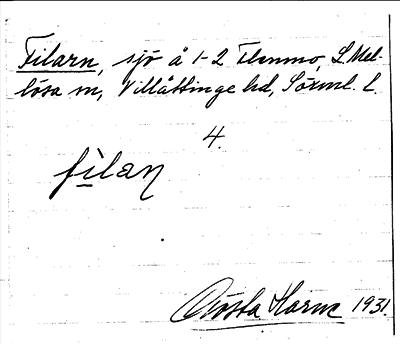 Filarn, sjö å 1-2 Flenmo, L. Mel-
lösa sn, Villåttinge hd, Sörml. l.
4.
filan
Gösta Harne 1931.